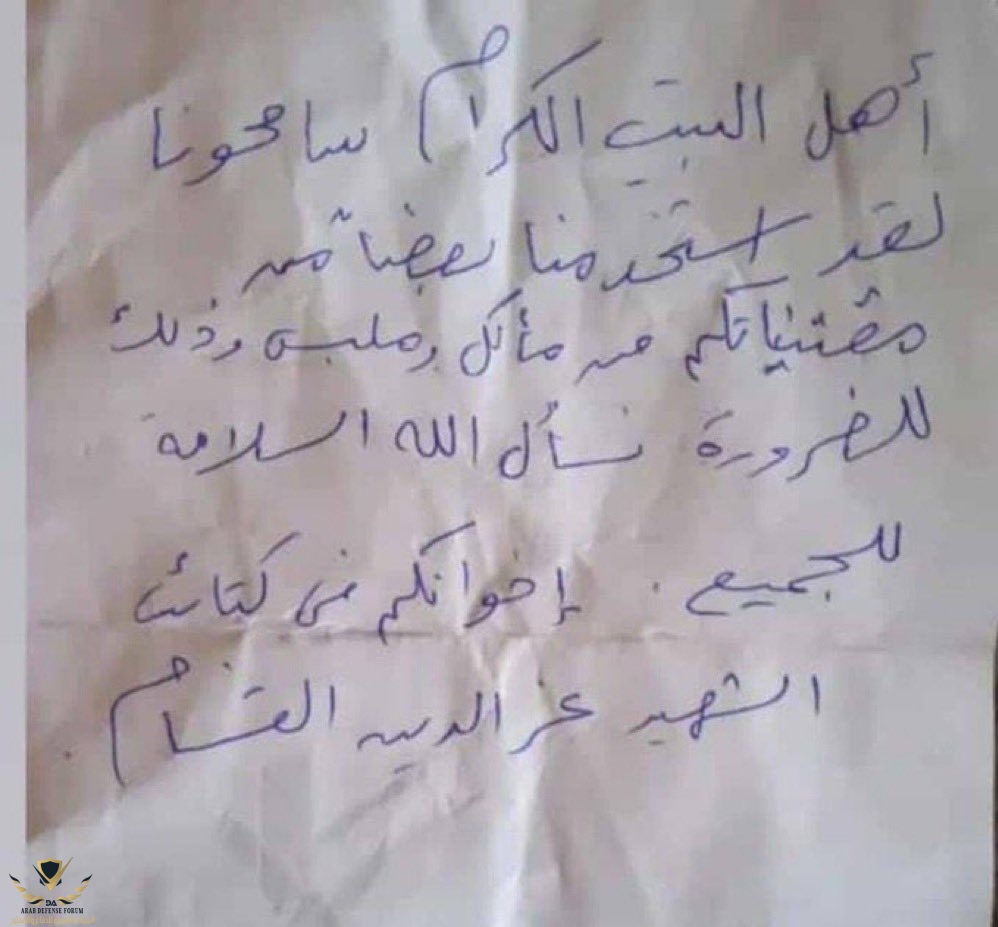 أهل البيت الكرام سامحونا
لقد استخدمنا بعضاً من
مقتنياتكم من مأكل وملبس وذلك
للضرورة نسأل الله السلامة
للجميع . إخوانكم في كتائب
الشهيد عز الدين القسام .
DA
ARAB DEFENSE FORUM